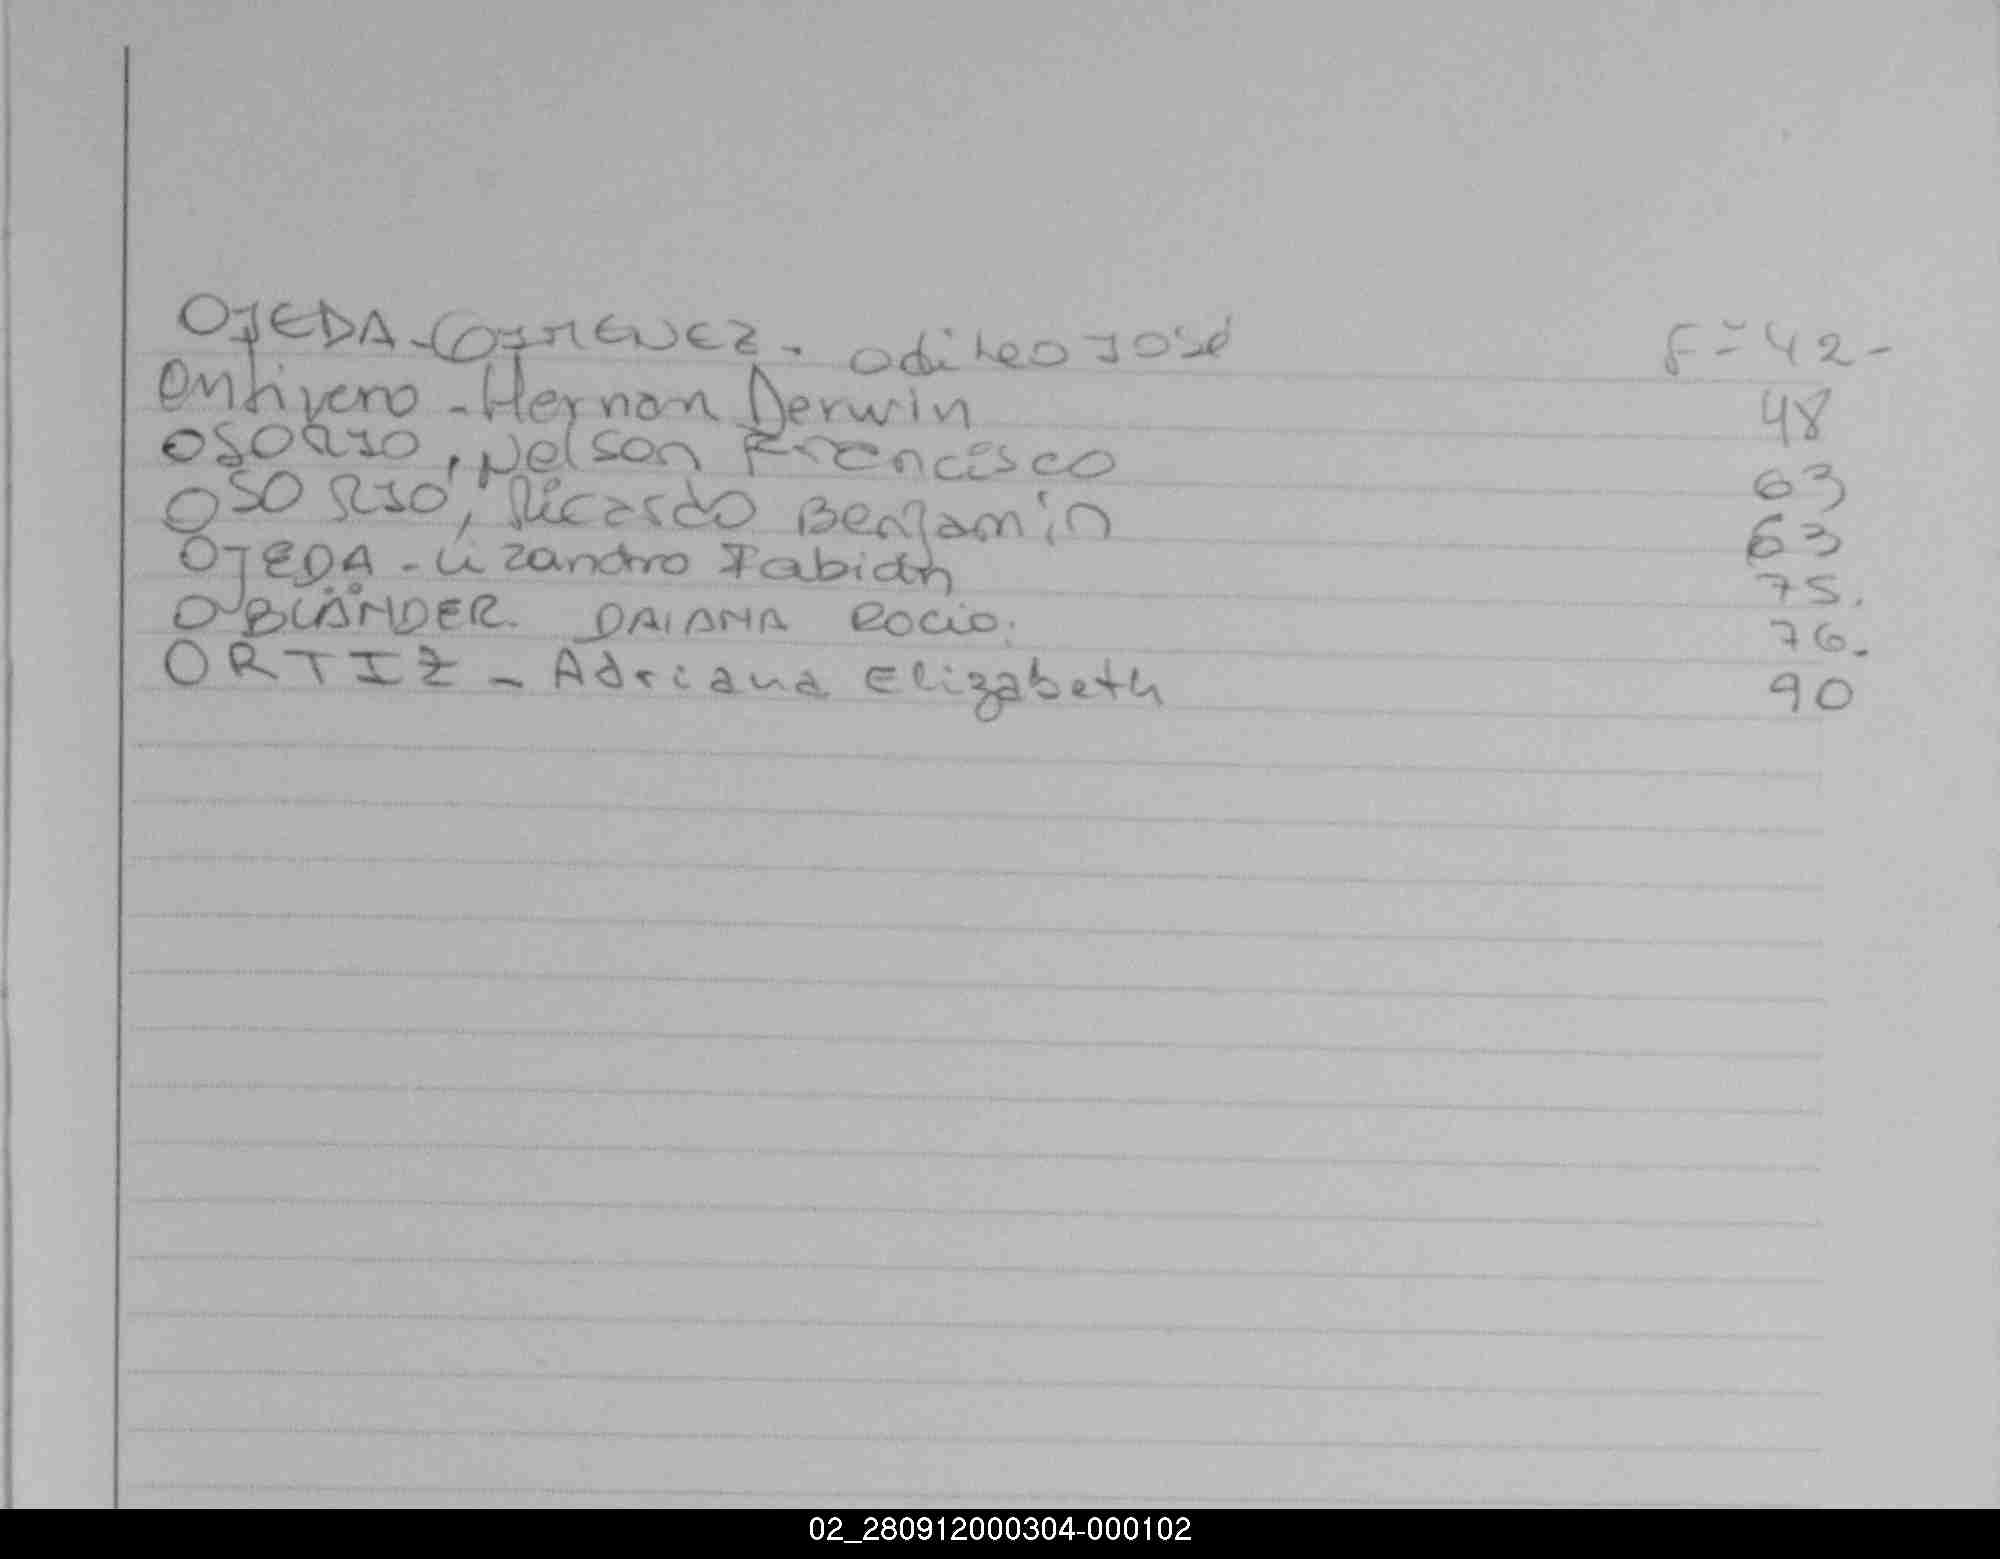 OJEDA - GIMENEZ - Odileo José F= 42 -
Ontivero - Hernan Derwin 48
OSORIO, Nelson Francisco 63
OSORIO, Ricardo Benjamin 63
OJEDA - Lizandro Fabián 75.
OBLÄNDER. DAIANA ROCIO. 76.
ORTIZ - Adriana Elizabeth 90
02_280912000304-000102